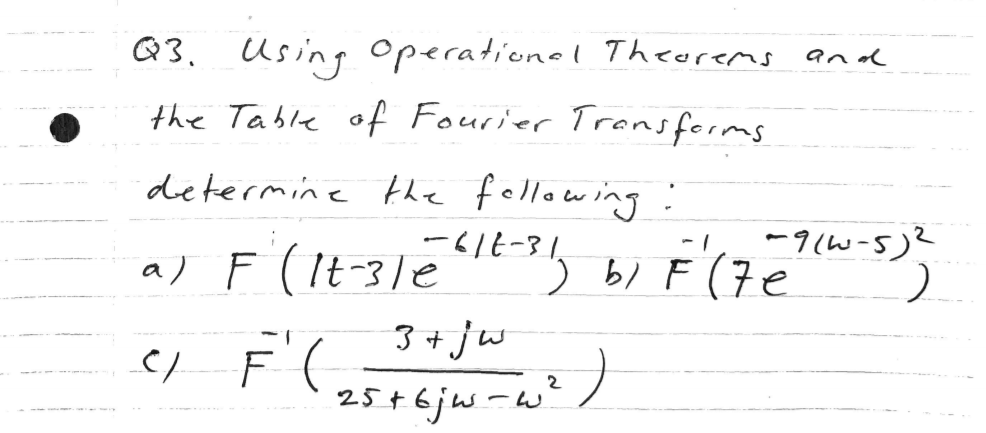 Q3. Using Operational Theorems and
the Table of Fourier Transforms
determine the following :
a) F (|t-3|e^{-6|t-3|}) b) F^{-1}(7e^{-9(w-5)^2})
c) F^{-1}( \frac{3+jw}{25+6jw-w^2} )